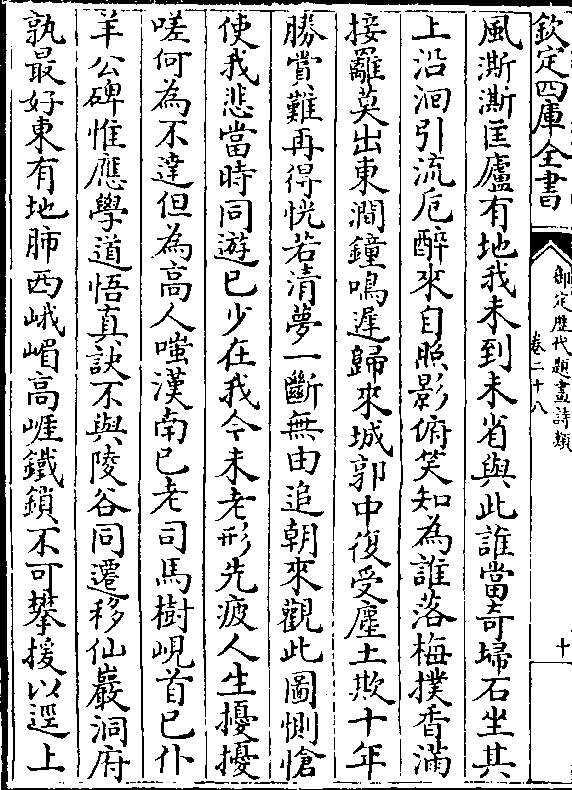 欽定四庫全書
御定歷代題畫詩類
卷二十八
十
風澌澌匡廬有地我未到未省與此誰當奇埽石坐其
上沿洄引流卮醉來自照影俯笑知為誰落梅撲香滿
接䍦莫出東澗鐘鳴遲歸來城郭中復受塵土欺十年
勝賞難再得恍若清夢一斷無由追朝來觀此圖惻愴
使我悲當時同遊已少在我今未老形先疲人生擾擾
嗟何為不達但為高人嗤漢南已老司馬樹峴首已仆
羊公碑惟應學道悟真訣不與陵谷同遷移仙巖洞府
孰最好東有地肺西峨嵋高崕鐵鎖不可攀援以逕上